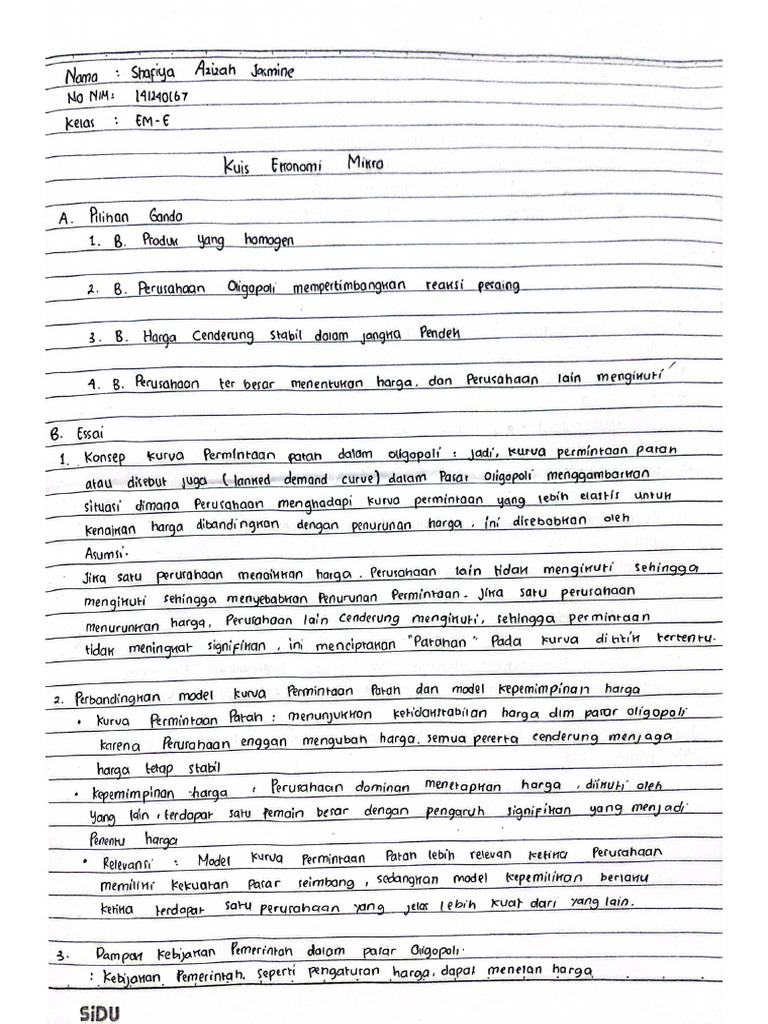 Nama : Shafiya Azizah Jasmine
No NIM : 141240167
Kelas : EM-E
Kuis Ekonomi Mikro
A. Pilihan Ganda
1. B. Produk yang homogen
2. B. Perusahaan Oligopoli mempertimbangkan reaksi pesaing
3. B. Harga Cenderung Stabil dalam jangka Pendek
4. B. Perusahaan ter besar menentukan harga, dan Perusahaan lain mengikuti
B. Essai
1. Konsep kurva Permintaan patah dalam oligopoli : jadi, kurva permintaan patah
atau disebut juga (lanked demand curve) dalam Pasar Oligopoli menggambarkan
situasi dimana Perusahaan menghadapi kurva permintaan yang lebih elastis untuk
kenaikan harga dibandingkan dengan penurunan harga, ini disebabkan oleh
Asumsi.
Jika satu perusahaan menaikkan harga. Perusahaan lain tidak mengikuti sehingga
mengikuti sehingga menyebabkan Penurunan Permintaan. Jika satu perusahaan
menurunkan harga, Perusahaan lain Cenderung mengikuti, sehingga permintaan
tidak meningkat signifikan, ini menciptakan "Patahan" Pada kurva di titik tertentu.
2. Perbandingkan model kurva Permintaan Patah dan model kepemimpinan harga
• Kurva Permintaan Patah : menunjukkan ketidakstabilan harga dlm pasar oligopoli
karena Perusahaan enggan mengubah harga. semua pererta cenderung menjaga
harga tetap stabil
• Kepemimpinan harga , Perusahaan dominan menetapkan harga , diikuti oleh
Yang lain , terdapat satu pemain besar dengan pengaruh signifikan yang menjadi
Penentu harga
• Relevansi : Model kurva Permintaan Patah lebih relevan ketika Perusahaan
memiliki kekuatan Pasar seimbang, sedangkan model kepemilikan berlaku
ketika terdapat satu perusahaan yang jelas lebih kuat dari yang lain.
3. Dampak kebijakan Pemerintah dalam pasar Oligopoli.
: Kebijakan Pemerintah, seperti pengaturan harga, dapat menekan harga
SiDU